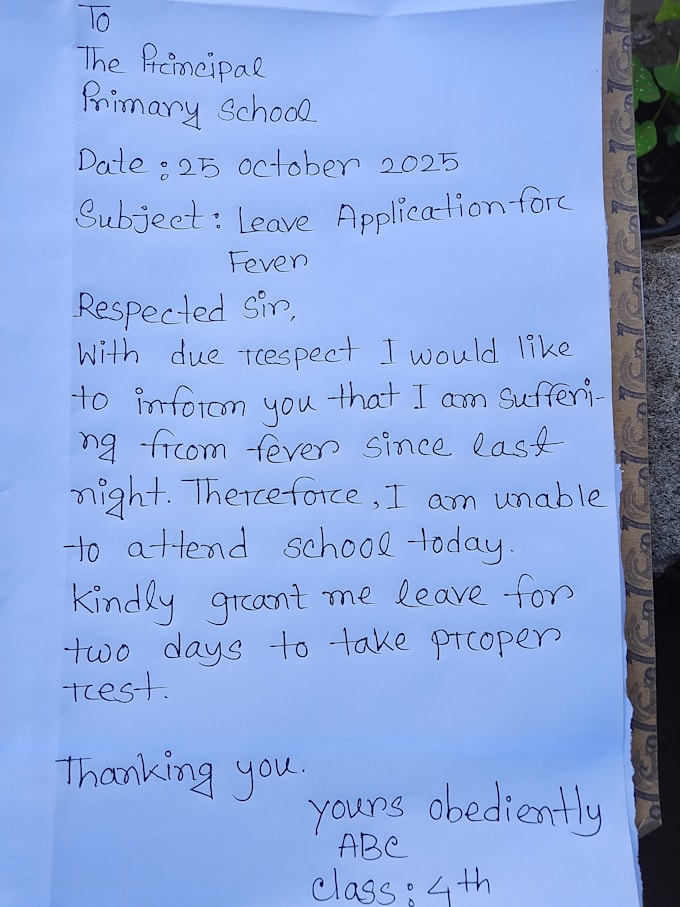 To
The Principal
Primary School
Date : 25 october 2025
Subject : Leave Application for
Fever
Respected Sir,
With due respect I would like
to inform you that I am sufferi-
ng from fever since last
night. Therefore, I am unable
to attend school today.
Kindly grant me leave for
two days to take proper
rest.
Thanking you.
yours obediently
ABC
class : 4th